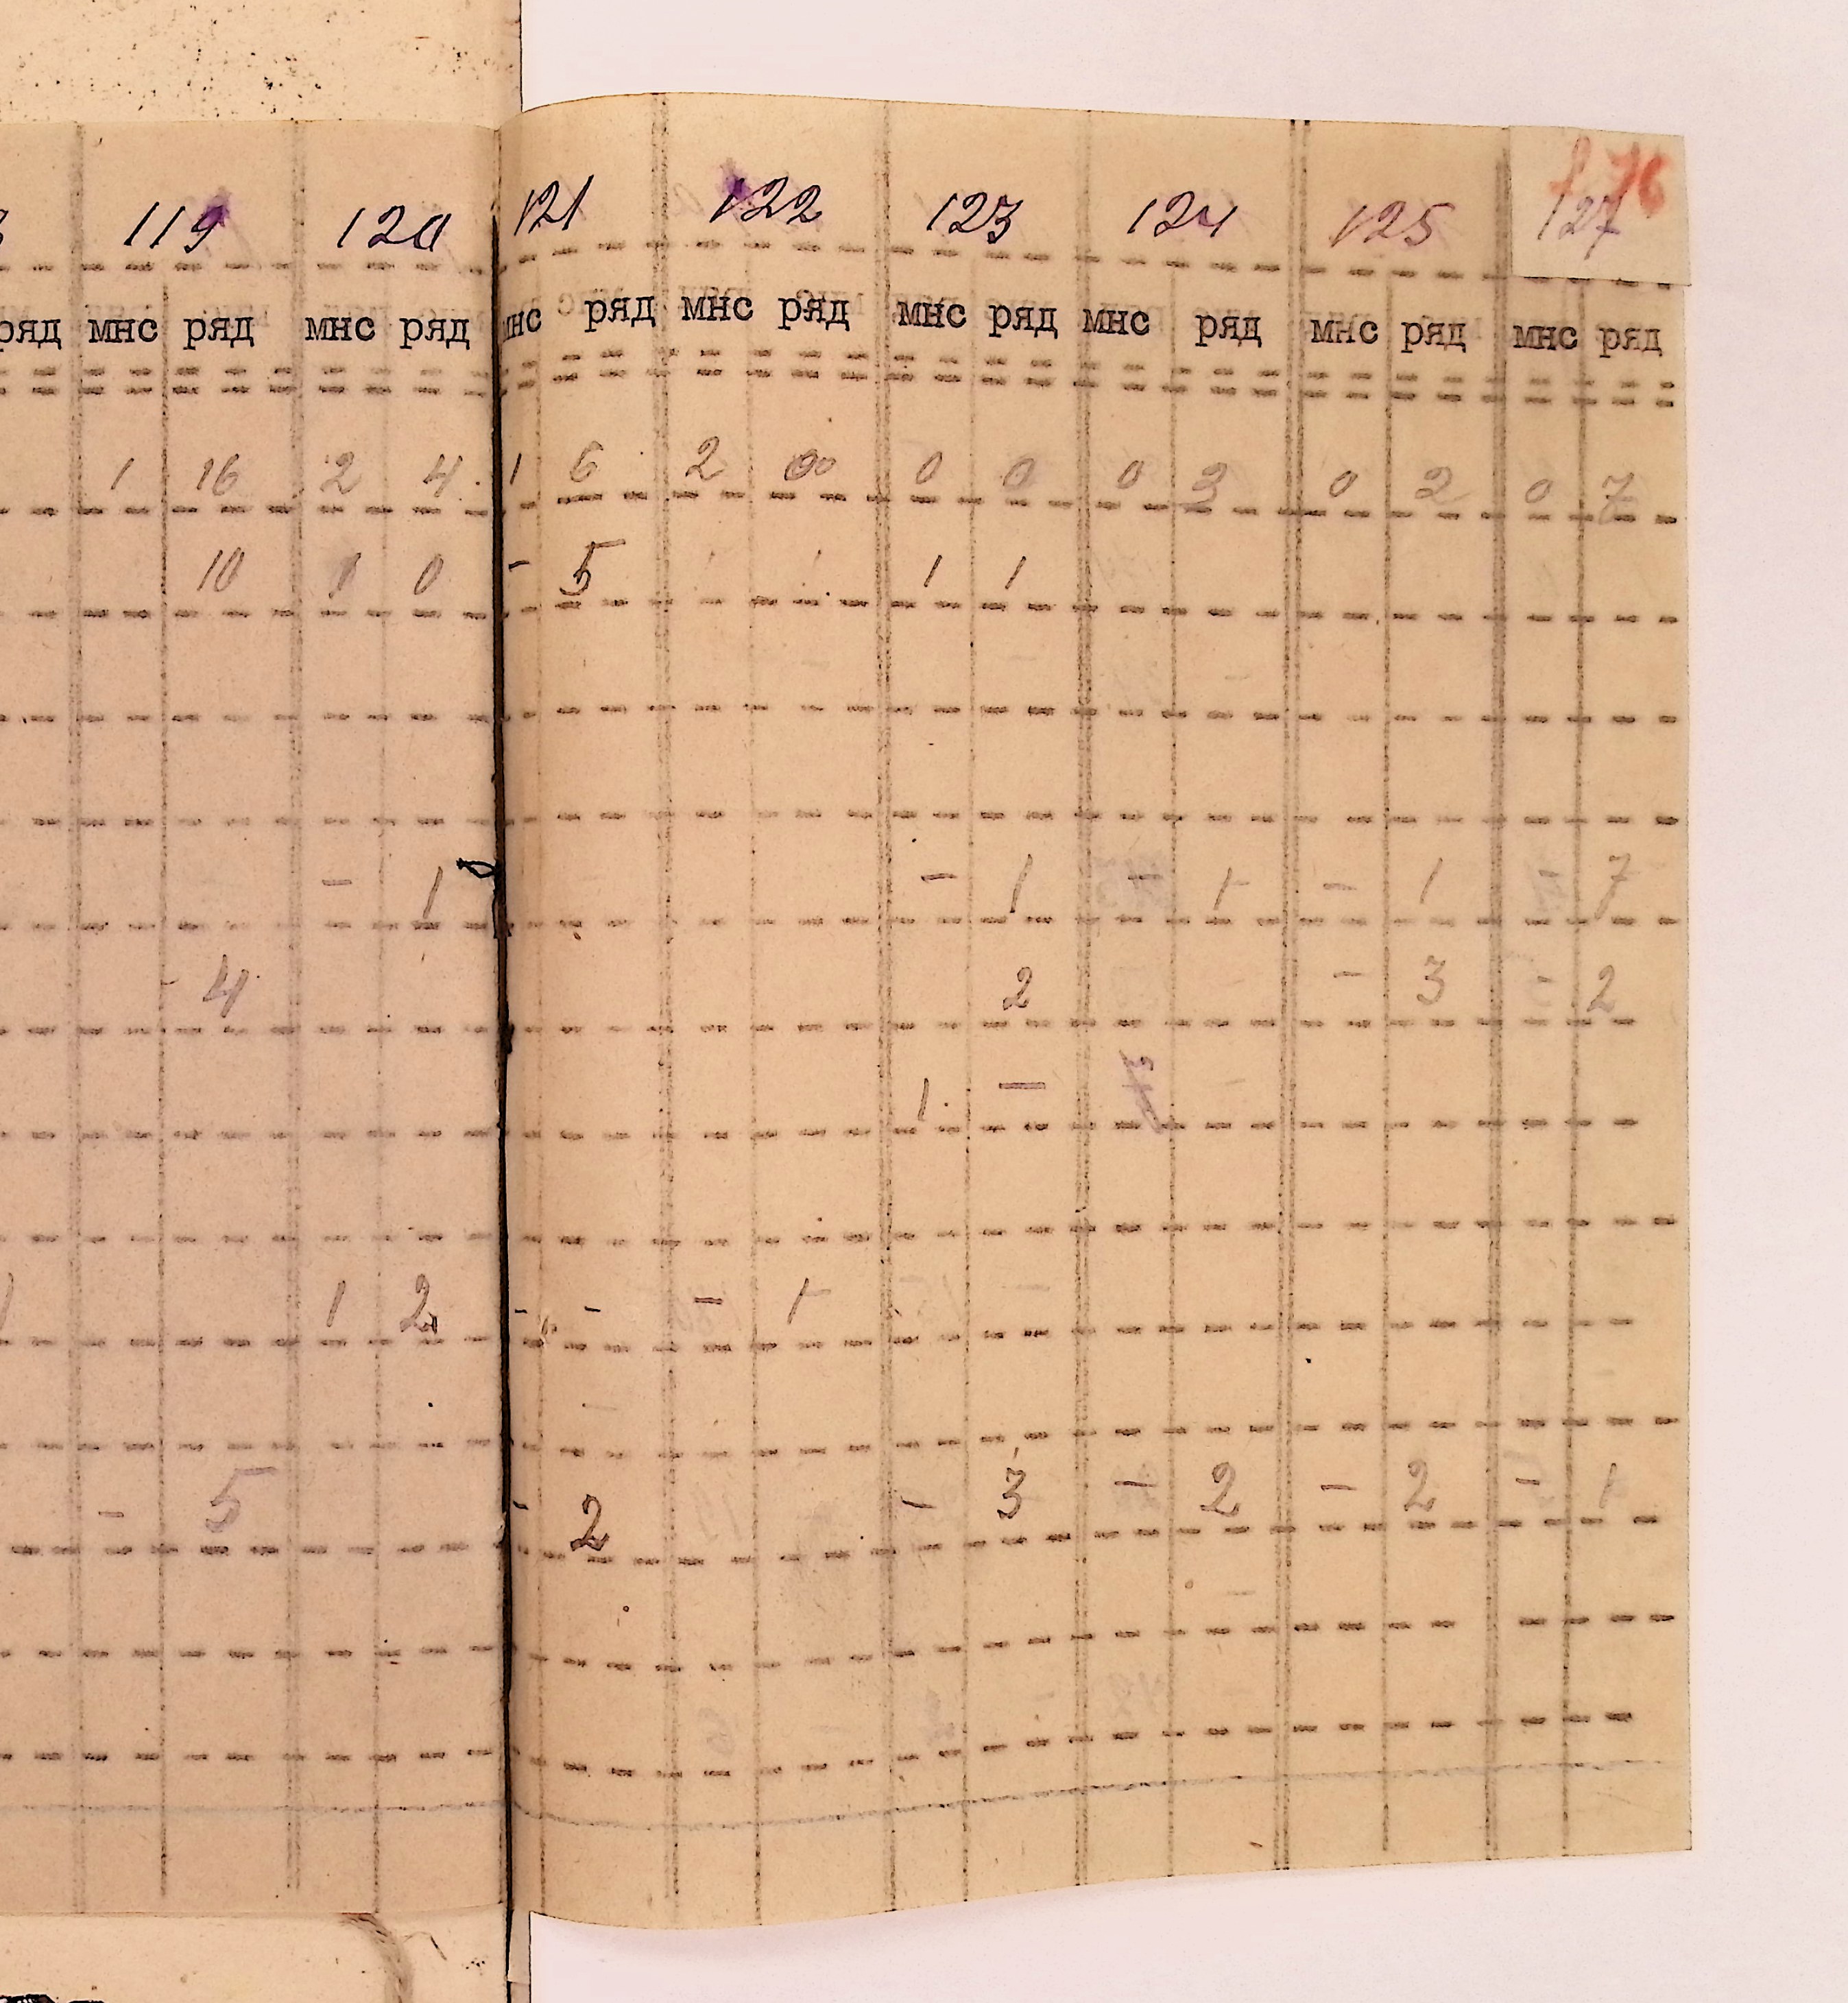 119 120 121 122 123 124 125 127
ряд мнс ряд мнс ряд мнс ряд мнс ряд мнс ряд мнс ряд мнс ряд мнс ряд
1 16 2 4 1 6 2 0 0 0 3 0 2 0 7
10 1 0 - 5 1 1
- 1 - 1 - 1 - 1 - 7
- 4 2 - 3 - 2
1 —
1 2 - - - 1
- 5 - 2 - 3 - 2 - 2 - 1